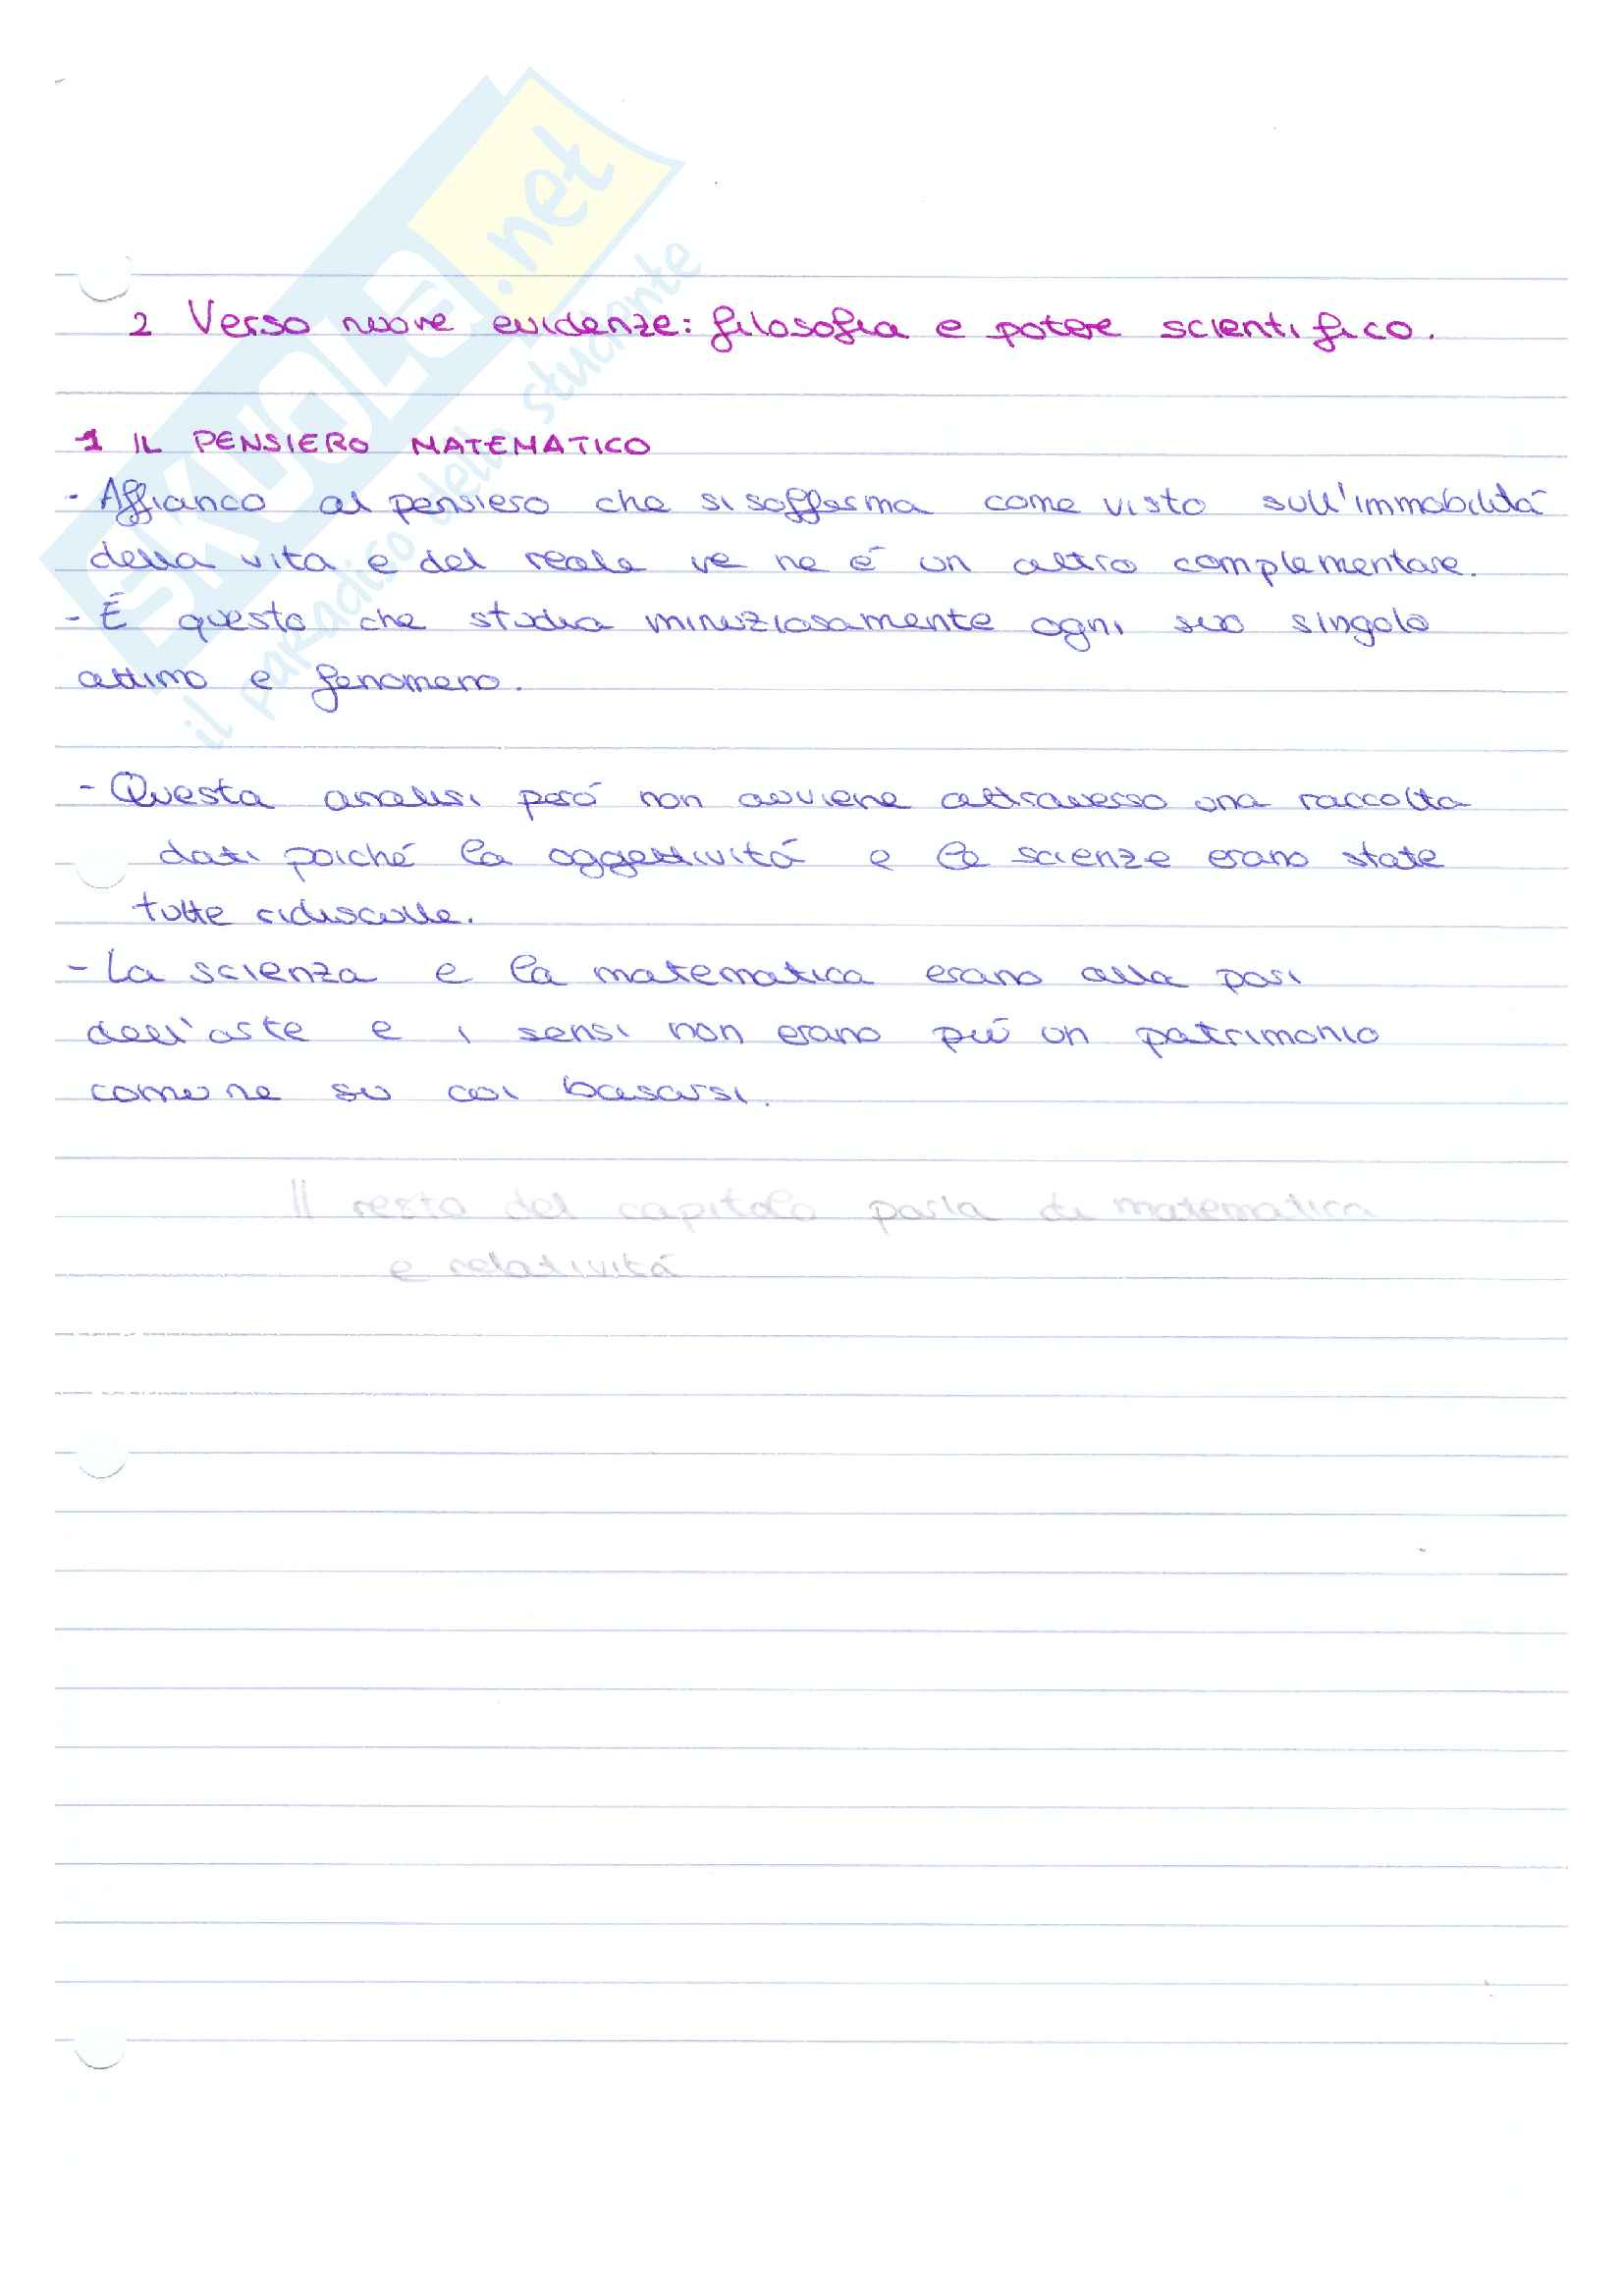 SKUOLA.net
il paradiso dello studente
2 Verso nuove evidenze: filosofia e potere scientifico.
1 IL PENSIERO MATEMATICO
- Affianco al pensiero che si sofferma come visto sull'immobilitá
della vita e del reale ve ne é un altro complementare.
- É questo che studia minuziosamente ogni suo singolo
attimo e fenomeno.
- Questa analisi peró non avviene attraverso una raccolta
dati poiché la oggettivitá e le scienze erano state
tutte ridiscusse.
- La scienza e la matematica erano alla pari
dell'arte e i sensi non erano piú un patrimonio
comune su cui basarsi.
Il resto del capitolo parla di matematica
e relativitá